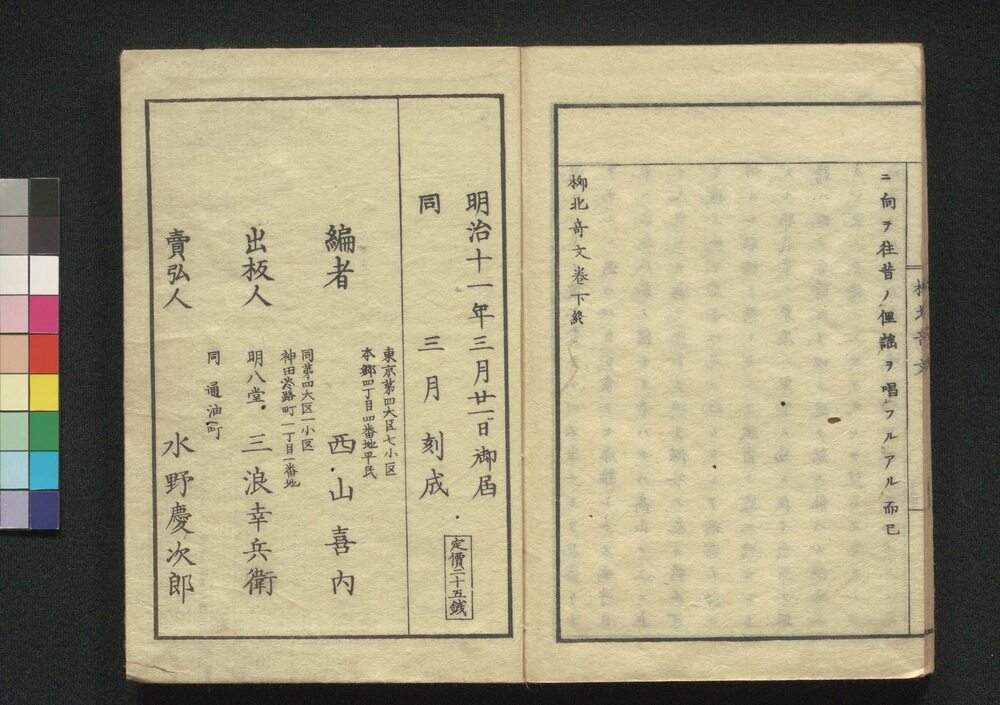 ニ向テ往昔ノ俚謡ヲ唱フルアル而已
柳北奇文卷下終
明治十一年三月廿一日御届
同 三月刻成
定價二十五銭
東京第四大区七小区
本郷四丁目四番地平民
編者 西山喜内
同第四大区一小区
神田淡路町一丁目一番地
出板人 明八堂 三浪幸兵衛
同通油町
賣弘人 水野慶次郎